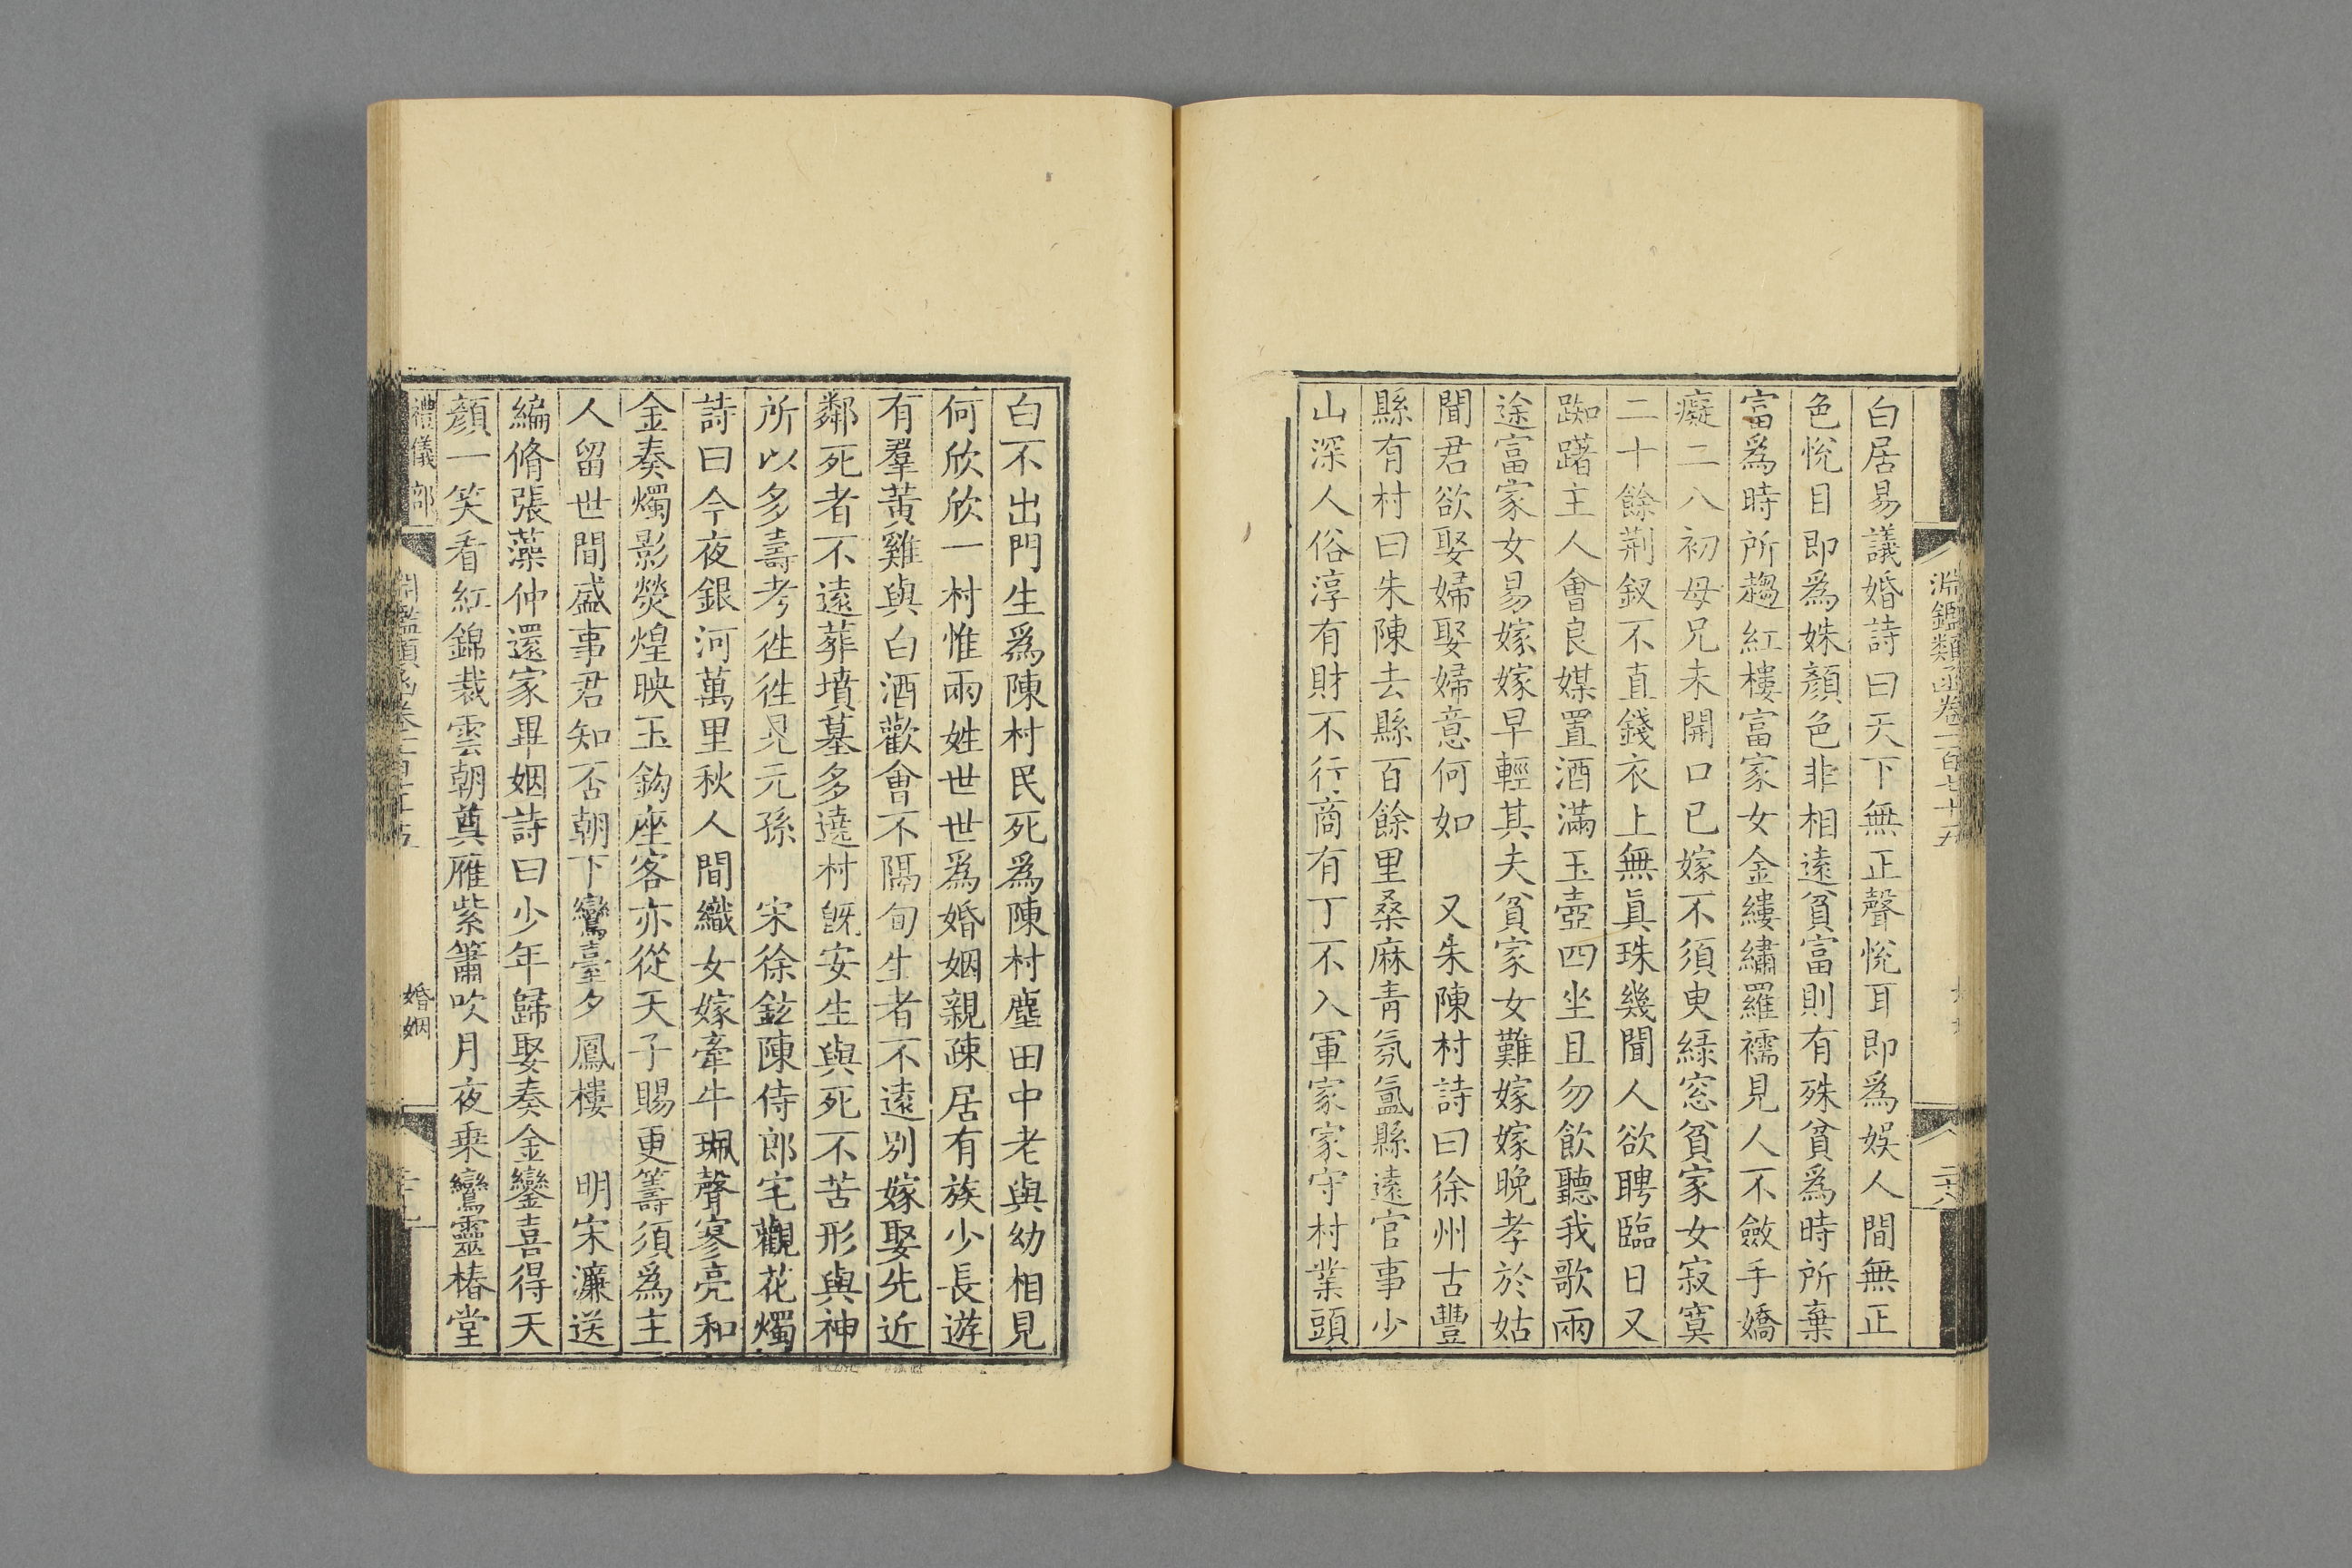 淵鑑類函卷一百七十五
白居易議婚詩曰天下無正聲悅耳即爲娛人間無正
色悅目即爲姝顏色非相遠貧富則有殊貧爲時所棄
富爲時所趨紅樓富家女金縷繡羅襦見人不斂手嬌
癡二八初母兄未開口已嫁不須臾綠窓貧家女寂寞
二十餘荆釵不直錢衣上無眞珠幾聞人欲聘臨日又
踟躇主人會良媒置酒滿玉壺四坐且勿飲聽我歌兩
途富家女易嫁嫁早輕其夫貧家女難嫁嫁晚孝於姑
聞君欲娶婦娶婦意何如　又朱陳村詩曰徐州古豐
縣有村曰朱陳去縣百餘里桑麻青氛氲縣遠官事少
山深人俗淳有財不行商有丁不入軍家家守村業頭
白不出門生爲陳村民死爲陳村塵田中老與幼相見
何欣欣一村惟兩姓世世爲婚姻親疎居有族少長遊
有羣黃雞與白酒歡會不隔旬生者不遠別嫁娶先近
鄰死者不遠葬墳墓多遶村既安生與死不苦形與神
所以多壽考徃徃見元孫　宋徐鉉陳侍郎宅觀花燭
詩曰今夜銀河萬里秋人間織女嫁牽牛珮聲寥亮和
金奏燭影熒煌映玉鈎座客亦從天子賜更籌須爲主
人留世間盛事君知否朝下鸞臺夕鳳樓　明宋濂送
編脩張藻仲還家畢姻詩曰少年歸娶奏金鑾喜得天
顏一笑看紅錦裁雲朝奠雁紫簫吹月夜乗鸞靈椿堂
禮儀部
婚姻